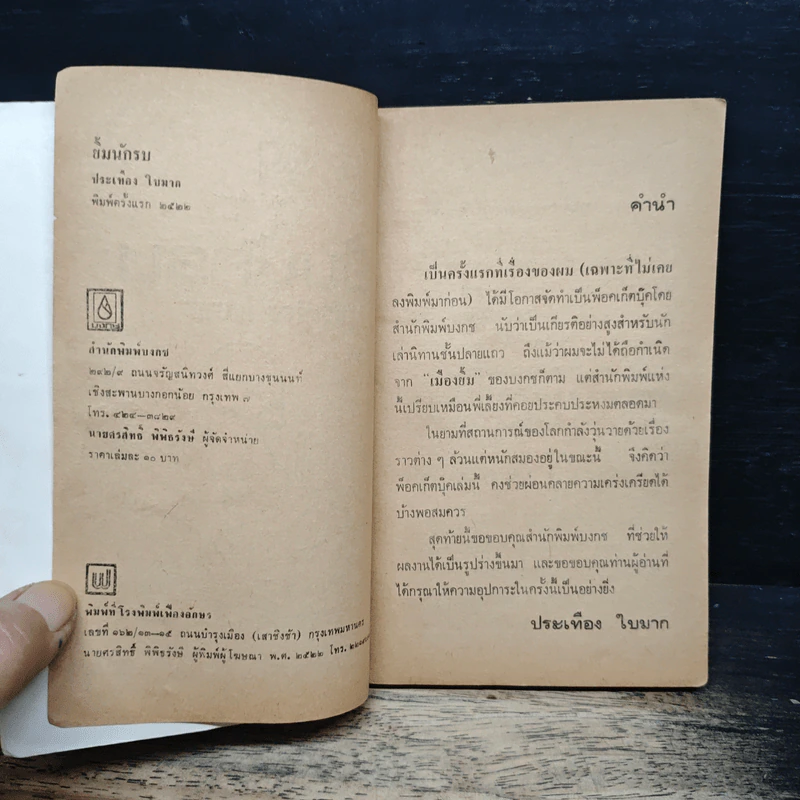 ยิ้มนักรบ
ประเทือง ใบมาก
พิมพ์ครั้งแรก ๒๕๒๒
บงกช
สำนักพิมพ์บงกช
๒๙๒/๙ ถนนจรัญสนิทวงศ์ สี่แยกบางขุนนนท์
เชิงสะพานบางกอกน้อย กรุงเทพ ๗
โทร. ๔๒๔—๓๘๒๙
นายศรสิทธิ์ พิพิธรังษี ผู้จัดจำหน่าย
ราคาเล่มละ ๑๐ บาท
พิมพ์ที่โรงพิมพ์เฟื่องอักษร
เลขที่ ๑๖๒/๑๓—๑๕ ถนนบำรุงเมือง (เสาชิงช้า) กรุงเทพมหานคร
นายศรสิทธิ์ พิพิธรังษี ผู้พิมพ์ผู้โฆษณา พ.ศ. ๒๕๒๒ โทร.
คำนำ
เป็นครั้งแรกที่เรื่องของผม (เฉพาะที่ไม่เคย
ลงพิมพ์มาก่อน) ได้มีโอกาสจัดทำเป็นพ็อคเก็ตบุ๊คโดย
สำนักพิมพ์บงกช นับว่าเป็นเกียรติอย่างสูงสำหรับนัก
เล่านิทานชั้นปลายแถว ถึงแม้ว่าผมจะไม่ได้ถือกำเนิด
จาก “เมืองยิ้ม” ของบงกชก็ตาม แต่สำนักพิมพ์แห่ง
นี้เปรียบเหมือนพี่เลี้ยงที่คอยประคบประหงมตลอดมา
ในยามที่สถานการณ์ของโลกกำลังวุ่นวายด้วยเรื่อง
ราวต่าง ๆ ล้วนแต่หนักสมองอยู่ในขณะนี้ จึงคิดว่า
พ็อคเก็ตบุ๊คเล่มนี้ คงช่วยผ่อนคลายความเคร่งเครียดได้
บ้างพอสมควร
สุดท้ายนี้ขอขอบคุณสำนักพิมพ์บงกช ที่ช่วยให้
ผลงานได้เป็นรูปร่างขึ้นมา และขอขอบคุณท่านผู้อ่านที่
ได้กรุณาให้ความอุปการะในครั้งนี้เป็นอย่างยิ่ง
ประเทือง ใบมาก